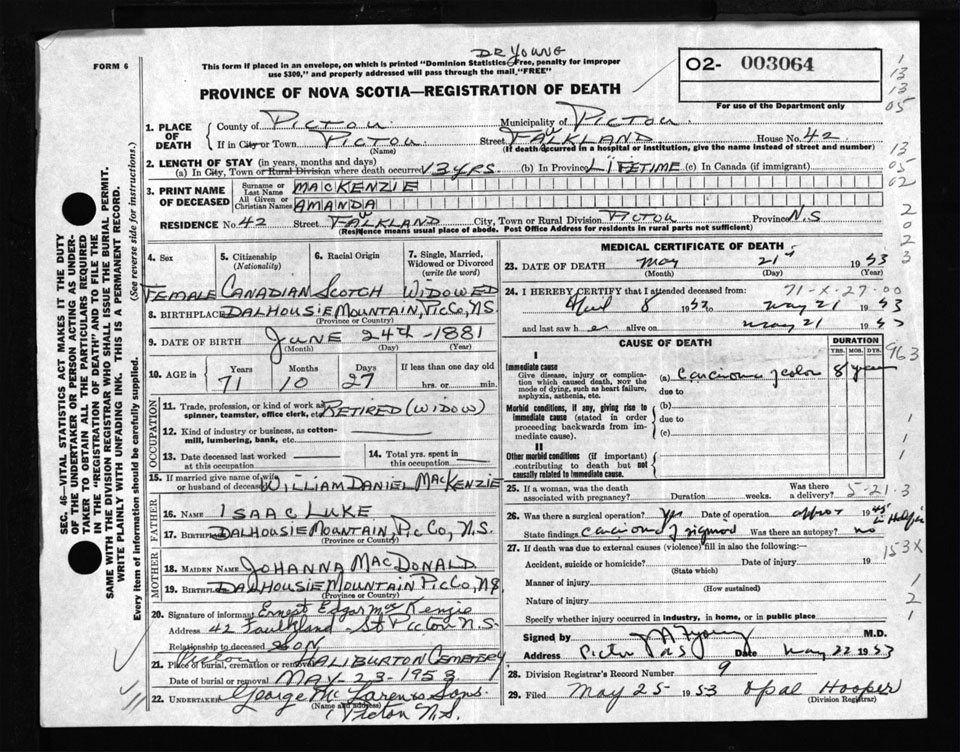 DR YOUNG
FORM 6
This form if placed in an envelope, on which is printed "Dominion Statistics Free, penalty for improper
use $300," and properly addressed will pass through the mail "FREE"
PROVINCE OF NOVA SCOTIA—REGISTRATION OF DEATH
O2- 003064
For use of the Department only
1. PLACE OF DEATH
County of Pictou Municipality of Pictou
If in City or Town Pictou Street FAULKLAND House No. 42
(Name) (If death occurred in a hospital or institution, give the name instead of street and number)
2. LENGTH OF STAY (in years, months and days)
(a) In City, Town or Rural Division where death occurred 3 yrs. (b) In Province LIFETIME (c) In Canada (if immigrant)
3. PRINT NAME OF DECEASED
Surname or Last Name MACKENZIE
All Given or Christian Names AMANDA
RESIDENCE No. 42 Street FAULKLAND City, Town or Rural Division PICTOU Province N.S
(Residence means usual place of abode. Post Office Address for residents in rural parts not sufficient)
4. Sex 5. Citizenship (Nationality) 6. Racial Origin 7. Single, Married, Widowed or Divorced (write the word)
FEMALE CANADIAN SCOTCH WIDOWED
8. BIRTHPLACE DALHOUSIE MOUNTAIN, PIC Co, N.S.
(Province or Country)
9. DATE OF BIRTH June 24th - 1881
(Month) (Day) (Year)
10. AGE in Years Months Days If less than one day old
71 10 27 hrs. or min.
OCCUPATION
11. Trade, profession, or kind of work as spinner, teamster, office clerk, etc. RETIRED (WIDOW)
12. Kind of industry or business, as cotton-mill, lumbering, bank, etc.
13. Date deceased last worked at this occupation
14. Total yrs. spent in this occupation
15. If married give name of wife or husband of deceased WILLIAM DANIEL MACKENZIE
FATHER
16. Name ISAAC LUKE
17. Birthplace DALHOUSIE MOUNTAIN, Pic Co, N.S.
(Province or Country)
MOTHER
18. MAIDEN NAME JOHANNA MACDONALD
19. Birthplace DALHOUSIE MOUNTAIN Pic Co, NS
(Province or Country)
20. Signature of informant Ernest Edgar MacKenzie
Address 42 Faulkland St Pictou N.S.
Relationship to deceased SON
21. Place of burial, cremation or removal HALIBURTON CEMETERY
Date of burial or removal MAY-23-1953
22. UNDERTAKER George McLaren & Sons.
(Name and address)
Pictou N.S.
MEDICAL CERTIFICATE OF DEATH
23. DATE OF DEATH May 21st 1953
(Month) (Day) (Year)
71-X-27-00
24. I HEREBY CERTIFY that I attended deceased from:
April 8 1952 May 21 1953
and last saw her alive on May 21 1953
CAUSE OF DEATH DURATION
YRS. MOS. DYS.
I
Immediate cause
Give disease, injury or complication which caused death, not the mode of dying, such as heart failure, asphyxia, asthenia, etc.
(a) Carcinoma of colon 8 years
due to
Morbid conditions, if any, giving rise to immediate cause (stated in order proceeding backwards from immediate cause).
(b)
due to
(c)
II
Other morbid conditions (if important) contributing to death but not causally related to immediate cause.
25. If a woman, was the death associated with pregnancy? Duration weeks. Was there a delivery? 5-21-3
26. Was there a surgical operation? Yes Date of operation approx 1945 in Halifax
State findings Carcinoma of sigmoid Was there an autopsy? no
153X
27. If death was due to external causes (violence) fill in also the following:—
Accident, suicide or homicide? Date of injury 19
(State which)
Manner of injury
(How sustained)
Nature of injury
Specify whether injury occurred in industry, in home, or in public place
Signed by M.D.
Address Pictou NS Date May 22 1953
28. Division Registrar's Record Number 9
29. Filed May 25 1953 Opal Hooper
(Division Registrar)
SEC. 46—VITAL STATISTICS ACT MAKES IT THE DUTY
OF THE UNDERTAKER OR PERSON ACTING AS UNDER-
TAKER TO OBTAIN ALL THE PARTICULARS REQUIRED
IN THE "REGISTRATION OF DEATH" AND TO FILE THE
SAME WITH THE DIVISION REGISTRAR WHO SHALL ISSUE THE BURIAL PERMIT.
WRITE PLAINLY WITH UNFADING INK. THIS IS A PERMANENT RECORD.
Every item of information should be carefully supplied. (See reverse side for instructions.)
1
13
13
05
13
05
02
2
0
2
3
963
1
1
1
1
2
1